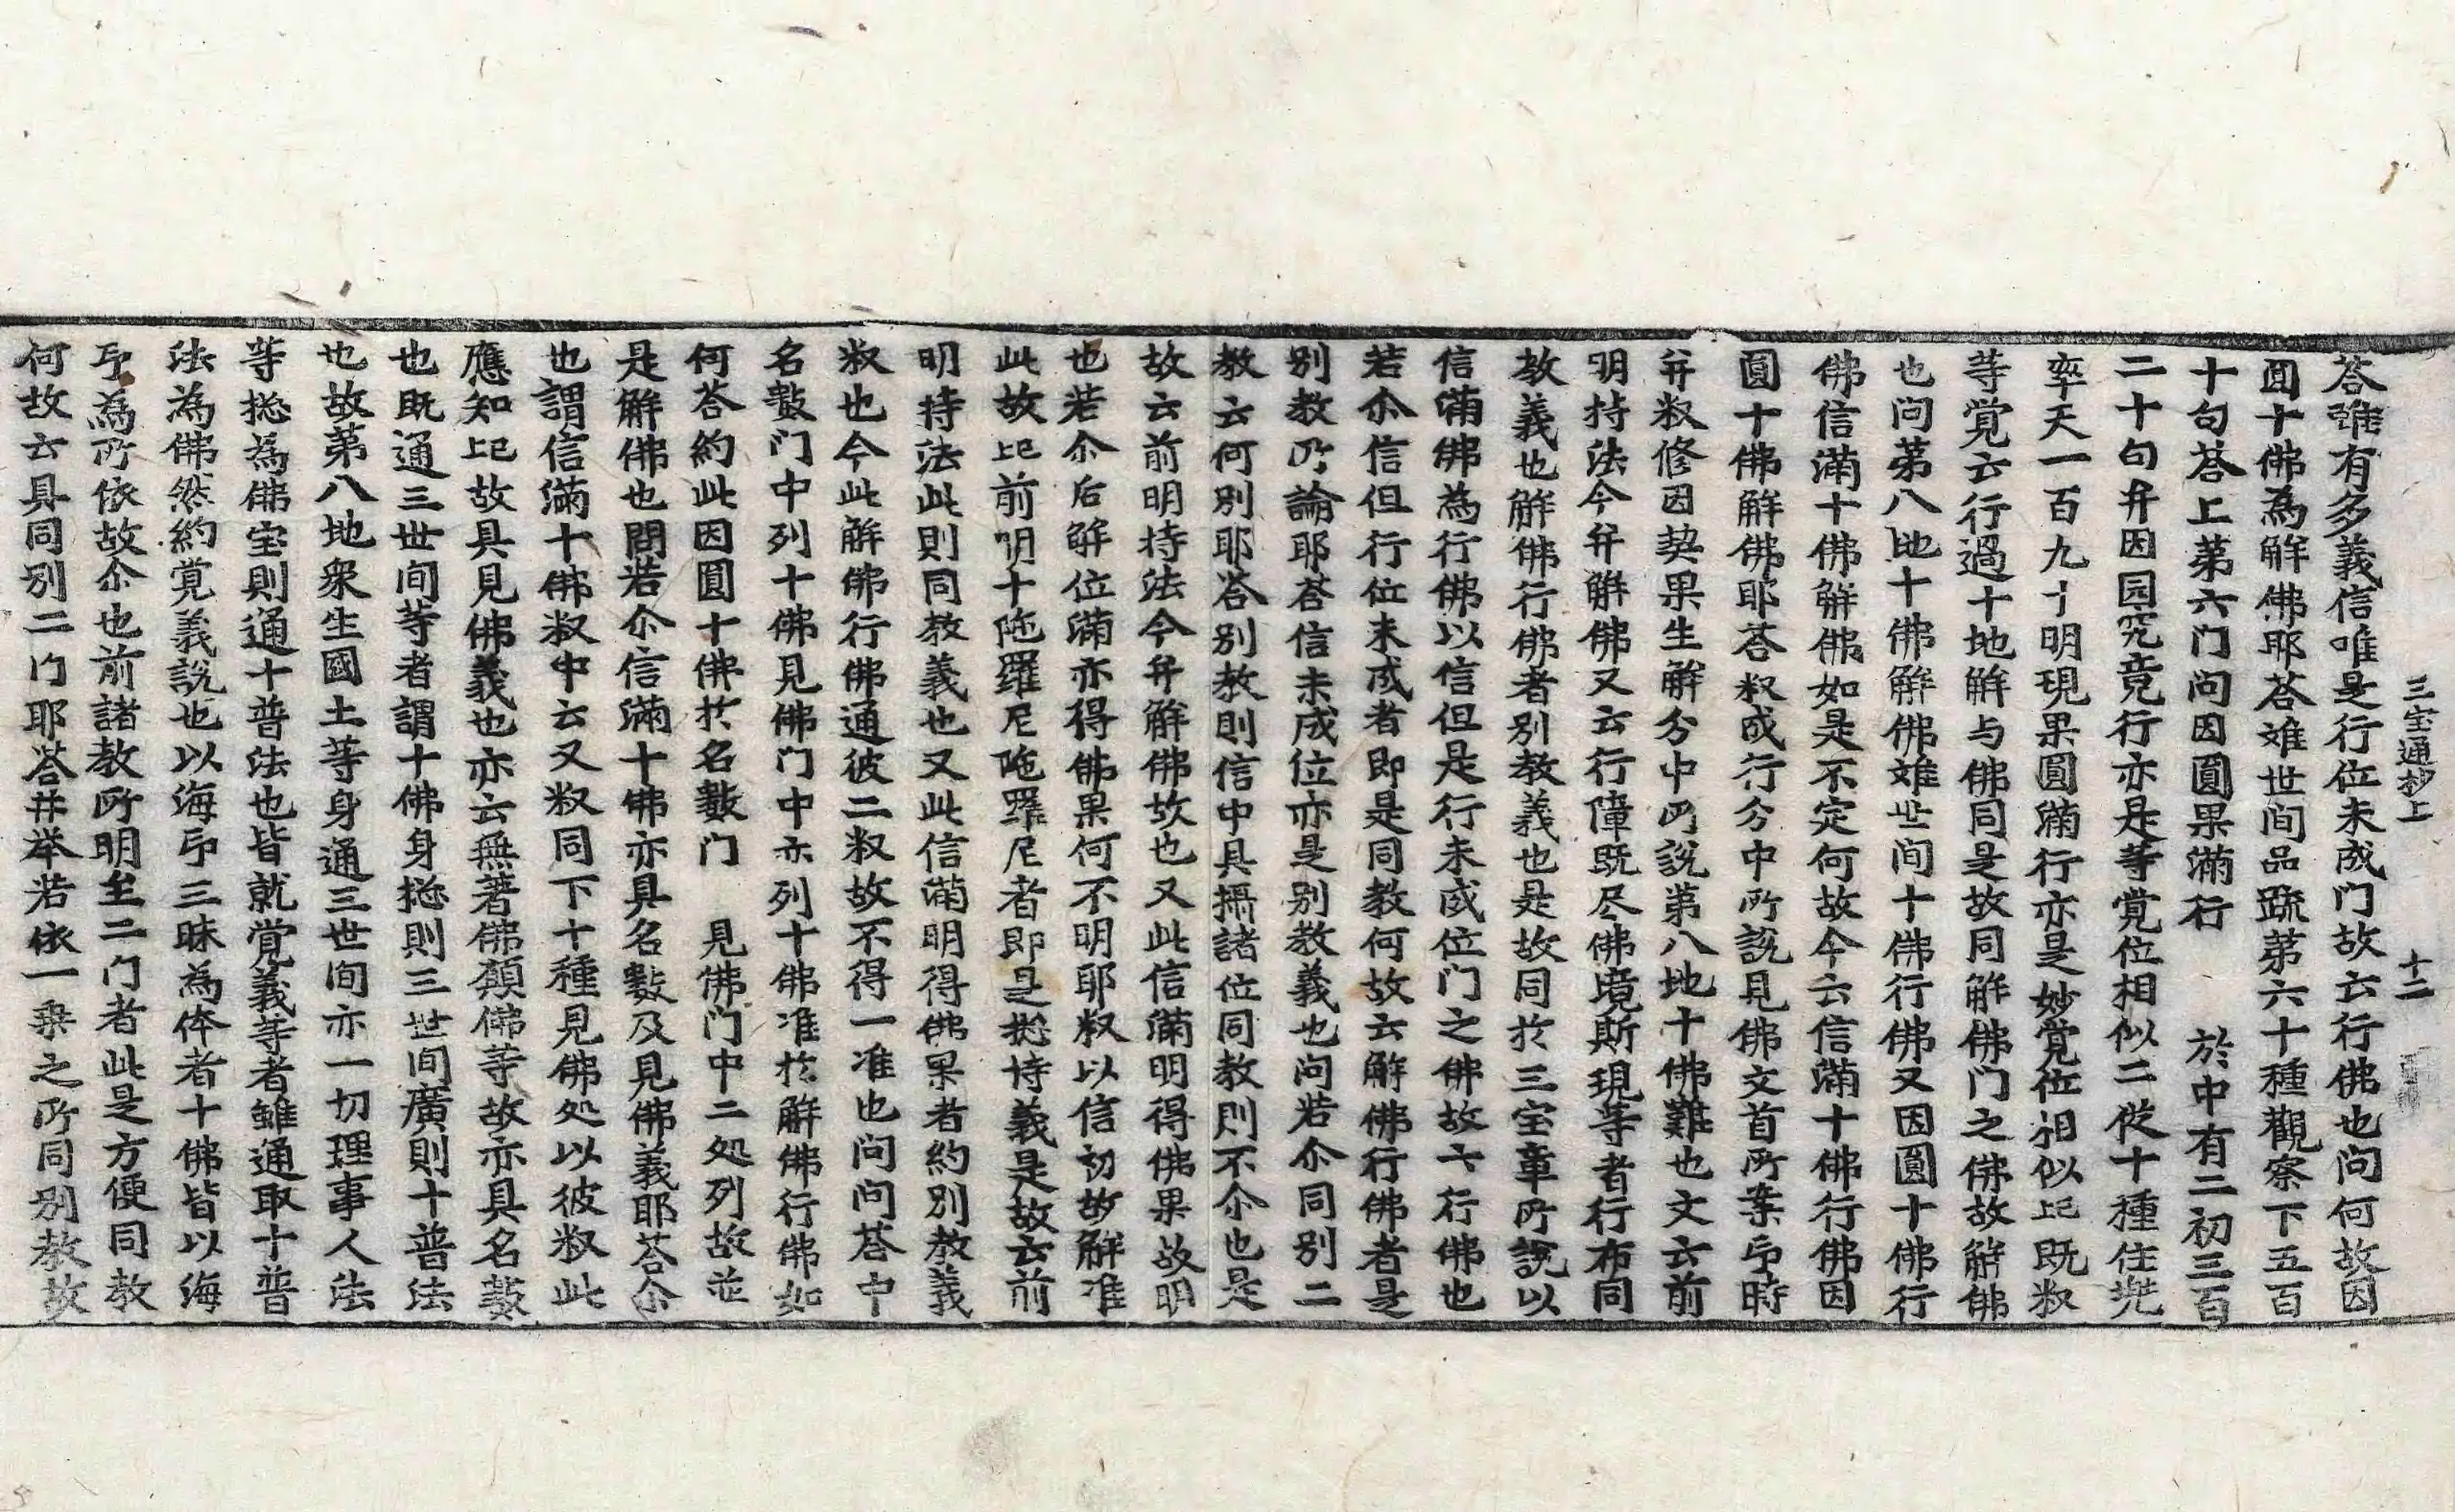 三宝通抄上　十二
答雖有多義信唯是行位未成门故云行佛也问何故因
圓十佛為解佛耶答雖世间品䟽第六十種觀察下五百
十句答上第六门问因圓果滿行　於中有二初三百
二十句弁因园究竟行亦是等覚位相似二従十種住兠
率天一百九十明現果圓滿行亦是妙覚位相似記既叙
等覚云行過十地解与佛同是故同解佛门之佛故解佛
也问第八地十佛解佛雖世间十佛行佛又因圓十佛行
佛信滿十佛解佛如是不定何故今云信滿十佛行佛因
圓十佛解佛耶答叙成行分中所說見佛文首所案印時
弁叙修因契果生解分中所說第八地十佛難也文云前
明持法今弁解佛又云行障既尽佛境斯現等者行布同
教義也解佛行佛者別教義也是故同於三宝章所說以
信滿佛為行佛以信但是行未成位门之佛故云行佛也
若尒信但行位未成者即是同教何故云解佛行佛者是
別教所論耶答信未成位亦是別教義也问若尒同別二
教云何別耶答別教則信中具攝諸位同教則不尒也是
故云前明持法今弁解佛故也又此信滿明得佛果故明
也若尒后解位滿亦得佛果何不明耶叙以信初故解准
此故記前明十陁羅尼陁羅尼者即是捴持義是故云前
明持法此則同教義也又此信滿明得佛果者約別教義
叙也今此解佛行佛通彼二叙故不得一准也问问答中
名數门中列十佛見佛门中亦列十佛准於解佛行佛如
何答約此因圓十佛於名數门　見佛门中二処列故並
是解佛也問若尒信滿十佛亦具名數及見佛義耶答尒
也謂信滿十佛叙中云又叙同下十種見佛処以彼叙此
應知記故具見佛義也亦云無著佛願佛等故亦具名數
也既通三世间等者謂十佛身捴則三世间廣則十普法
也故第八地衆生國土等身通三世间亦一切理事人法
等捴為佛宝則通十普法也皆就覚義等者雖通取十普
法為佛然約覚義說也以海印三昧為体者十佛皆以海
印為所依故尒也前諸教所明至二门者此是方便同教
何故云具同別二门耶答幷举若依一乗之所同別教故